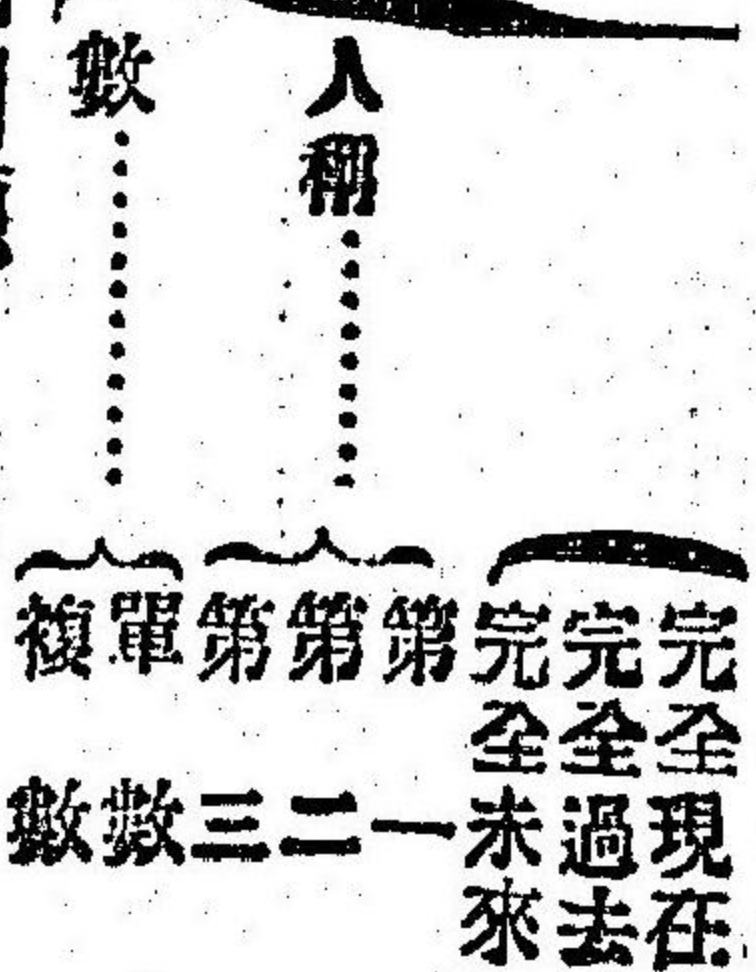 完全現在
完全過去
完全未來
人稱
第一
第二
第三
數
單數
複數